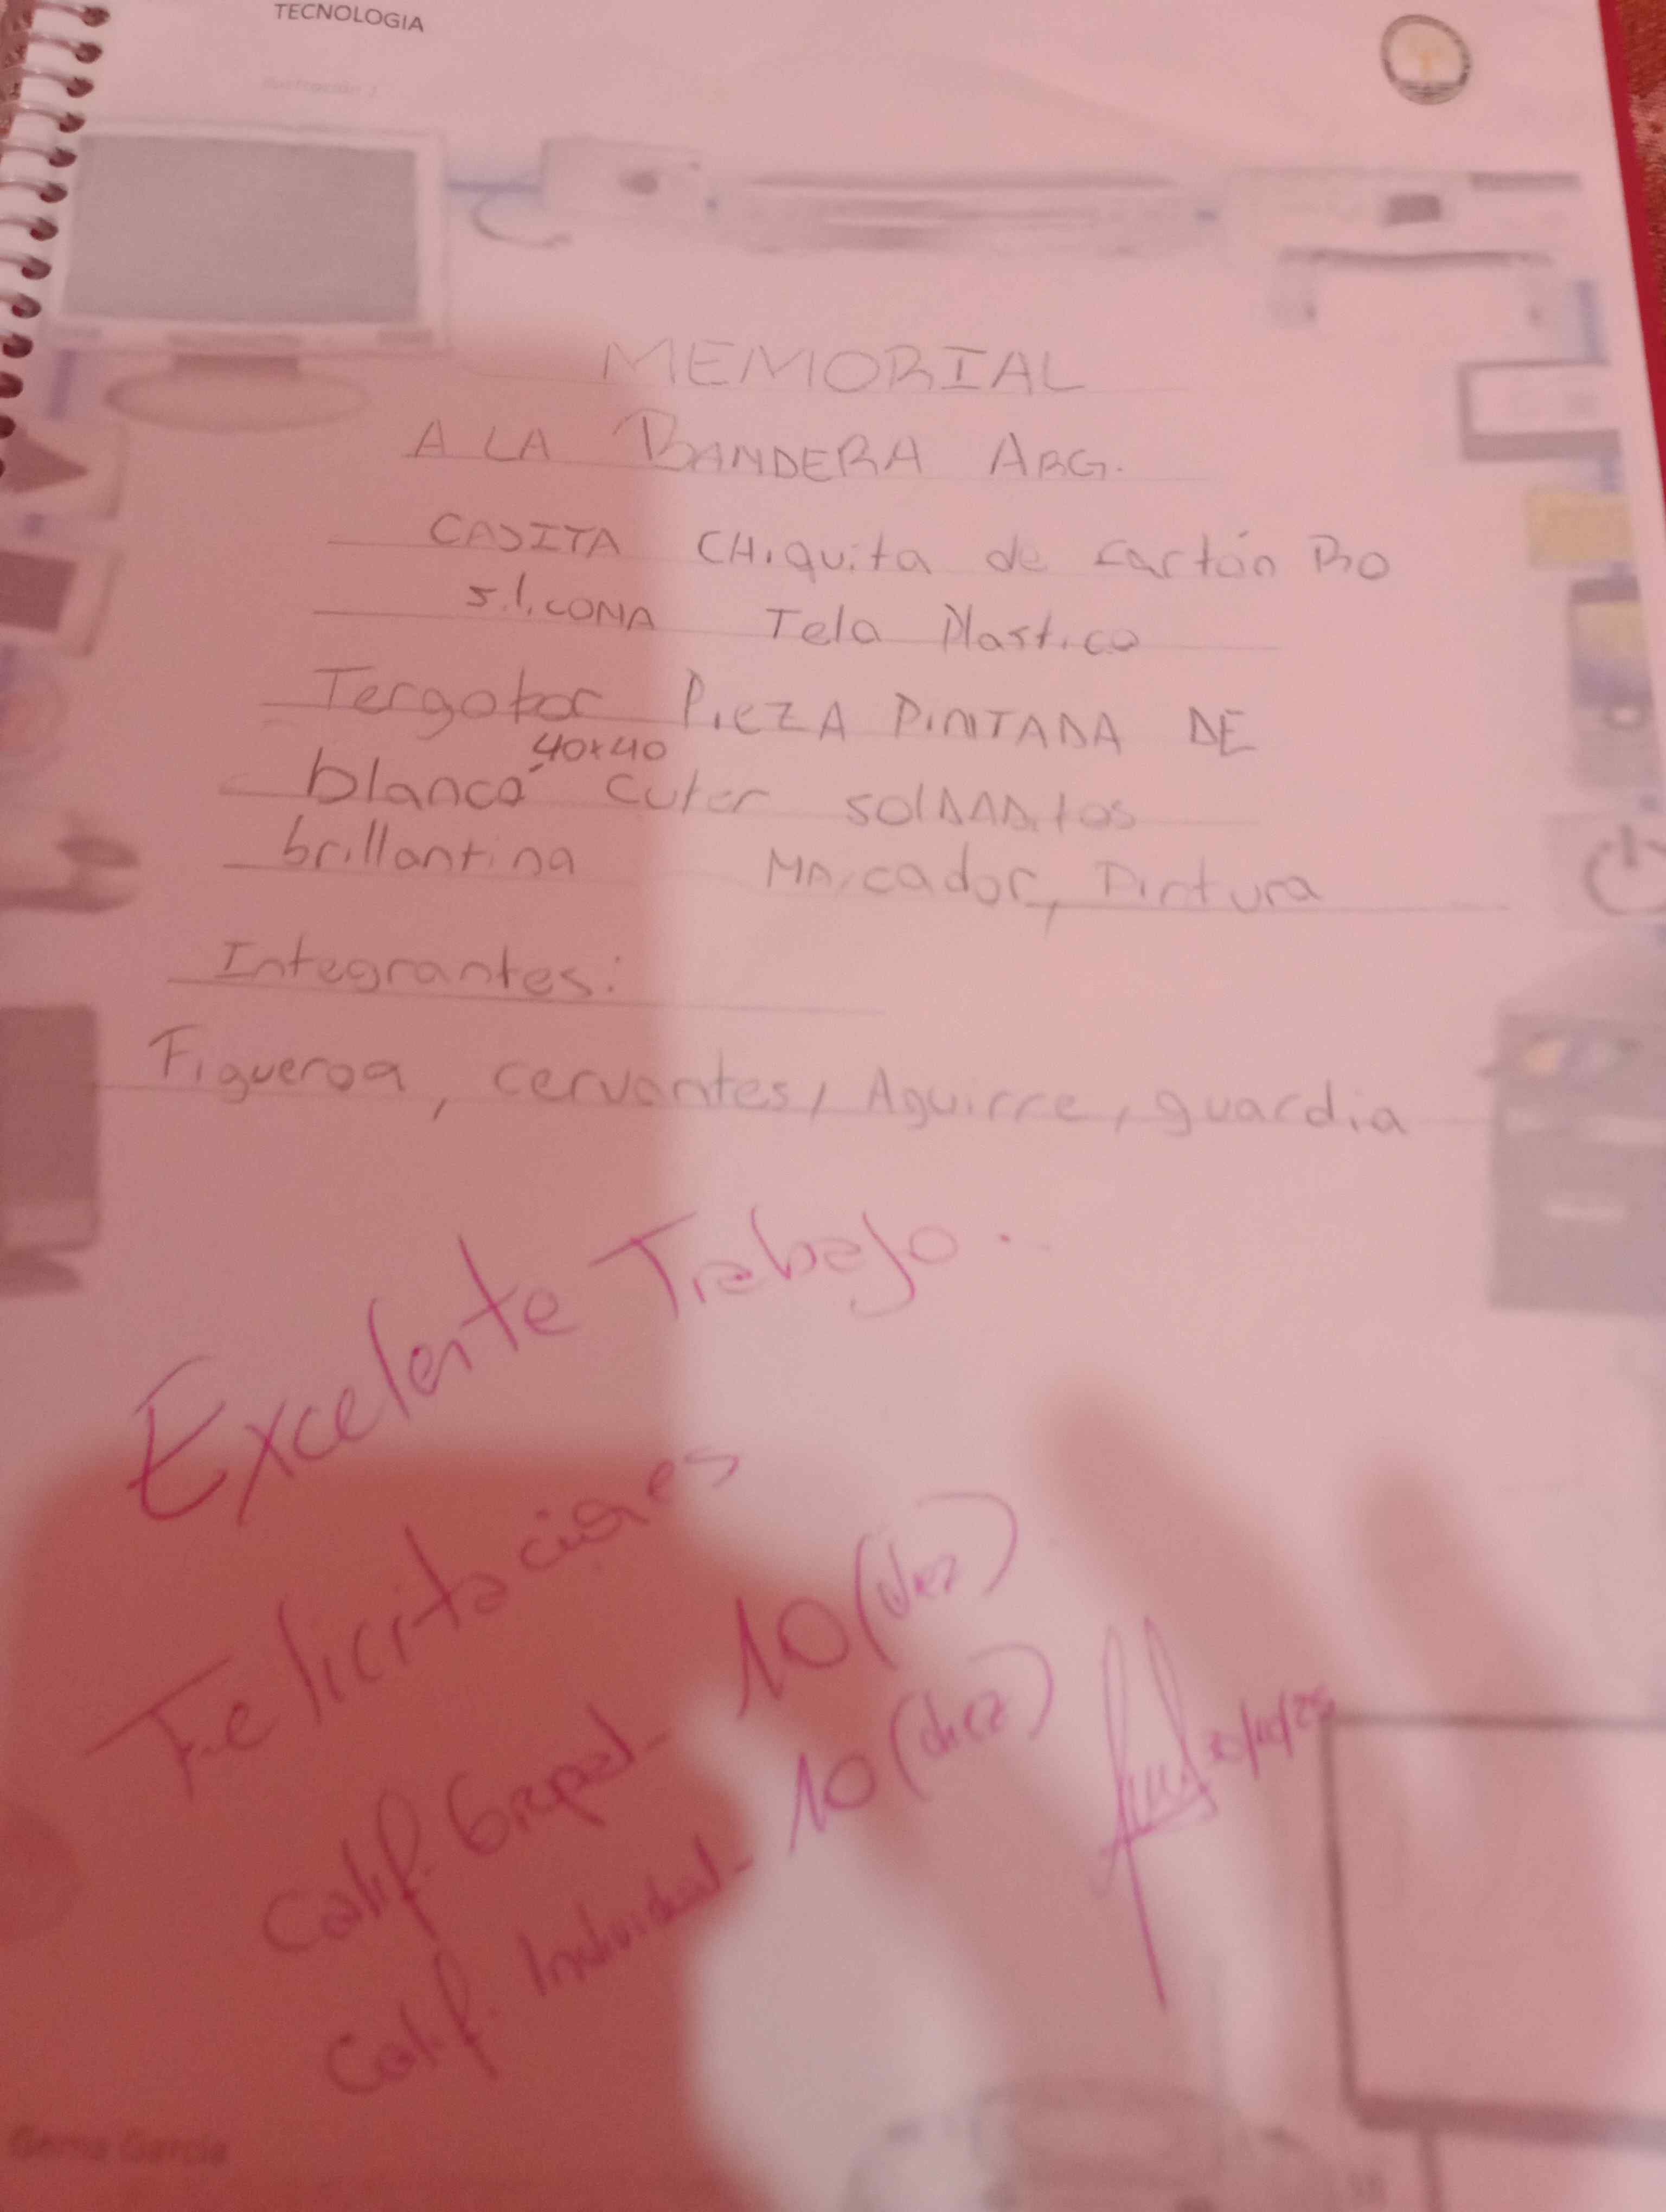 TECNOLOGIA
MEMORIAL
A LA BANDERA ARG.
CASITA CHiquita de cartón
siliCONA Tela Plastico
Tergopor PiezA PiNTADA DE
40x40
blanco cuter SOlDADitos
brillantina MArcador, Pintura
Integrantes:
Figueroa, cervantes, Aguirre, guardia
Excelente Trabajo..
Felicitaciones
Calif. Grupal - 10 (diez)
Calif. Individual - 10 (diez)